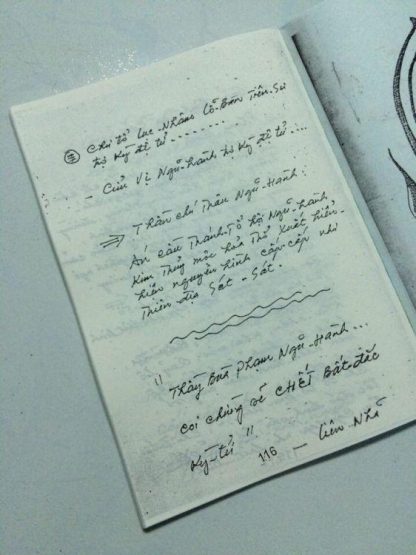 ③ Chú tổ Lục-Nhâm Lỗ-Ban Tiên-Sư
hộ Kỳ đệ tử ........
- Cửu Vị Ngũ-hành hộ Kỳ đệ tử ....
⇒ Thần chú Thần Ngũ-Hành:
Án cầu Thánh-Tổ hộ Ngũ-hành
Kim Thủy mộc hỏa Thổ Xuất hiện
hiện nguyên hình cấp cấp như
Thiên địa Sát-Sát.
"Thầy Bùa phạm Ngũ-Hành...
coi chừng sẽ CHẾT Bất-đắc
Kỳ-tử"
116 — Liên Nhi